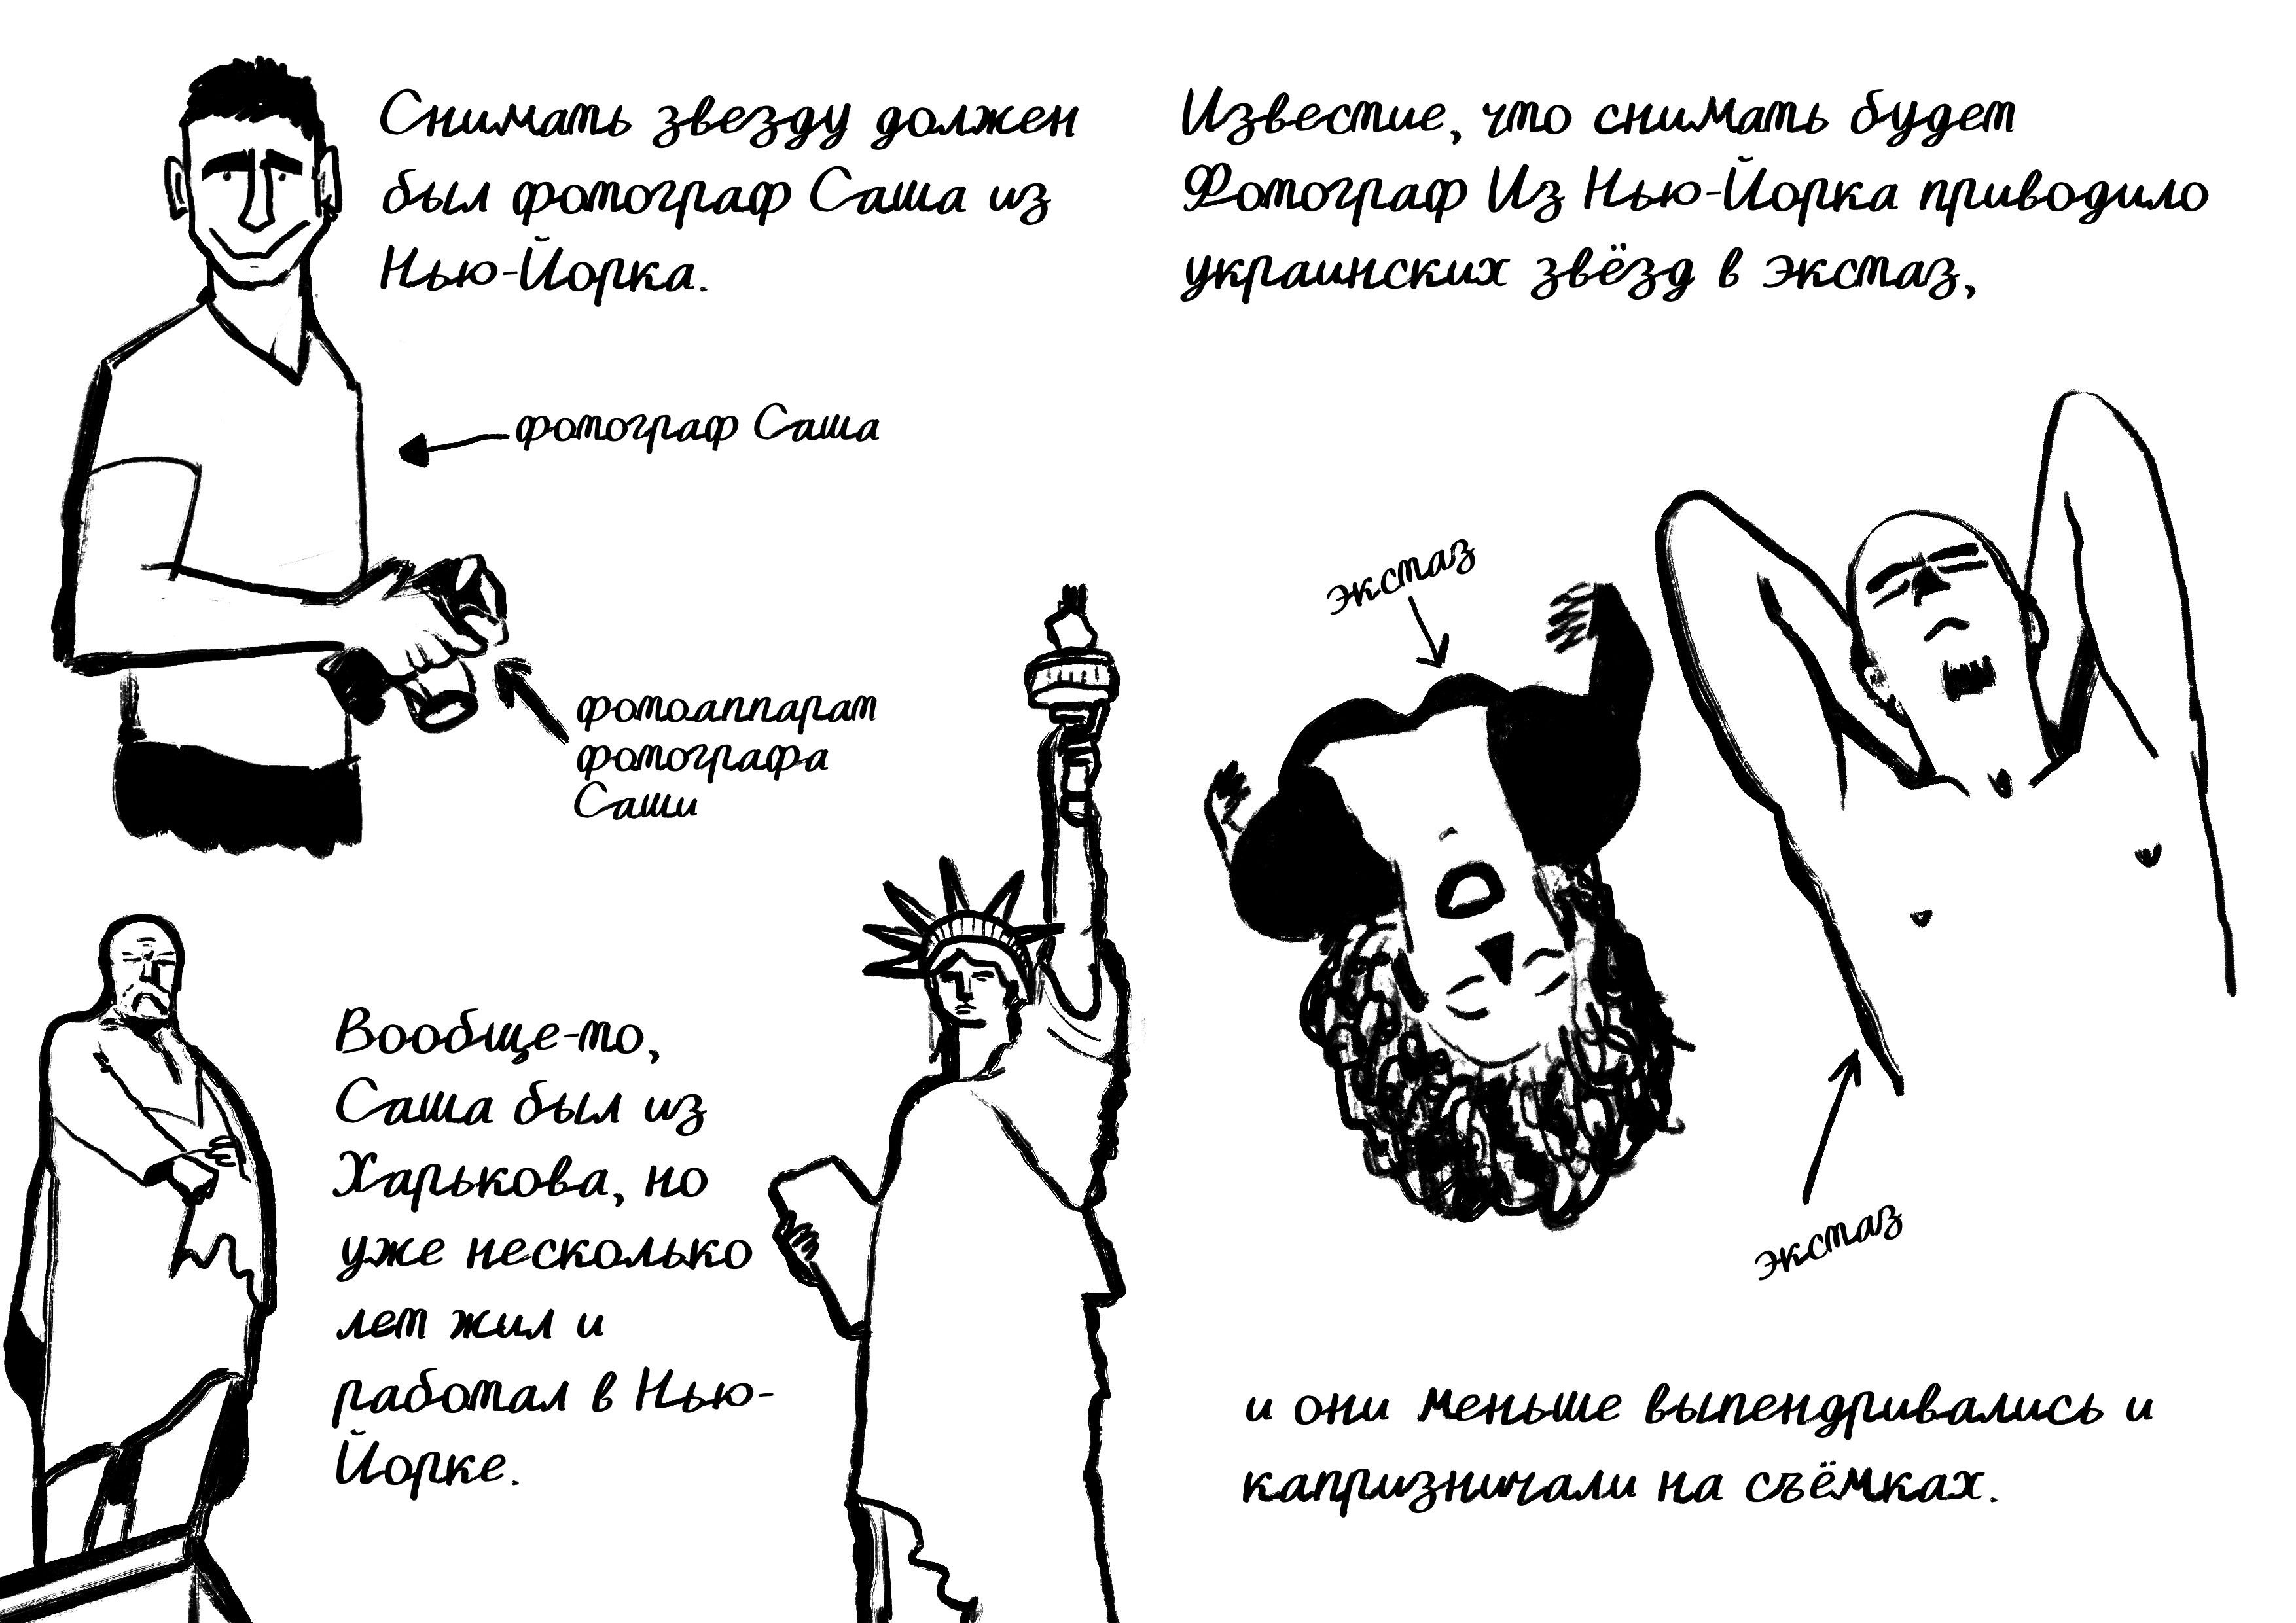 Снимать звезду должен
был фотограф Саша из
Нью-Йорка.
фотограф Саша
фотоаппарат
фотографа
Саши
Вообще-то,
Саша был из
Харькова, но
уже несколько
лет жил и
работал в Нью-
Йорке.
Известие, что снимать будет
Фотограф Из Нью-Йорка приводило
украинских звёзд в экстаз,
экстаз
экстаз
и они меньше выпендривались и
капризничали на съёмках.